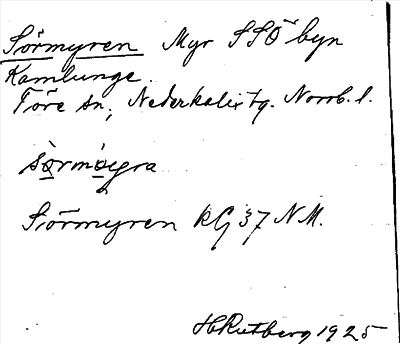 Sörmyren Myr SSÖ byn
Kamlunge.
Töre sn, Nederkalix tg. Norrb. l.
Sörmyren kG 37 N.M.
H Rutberg 1925